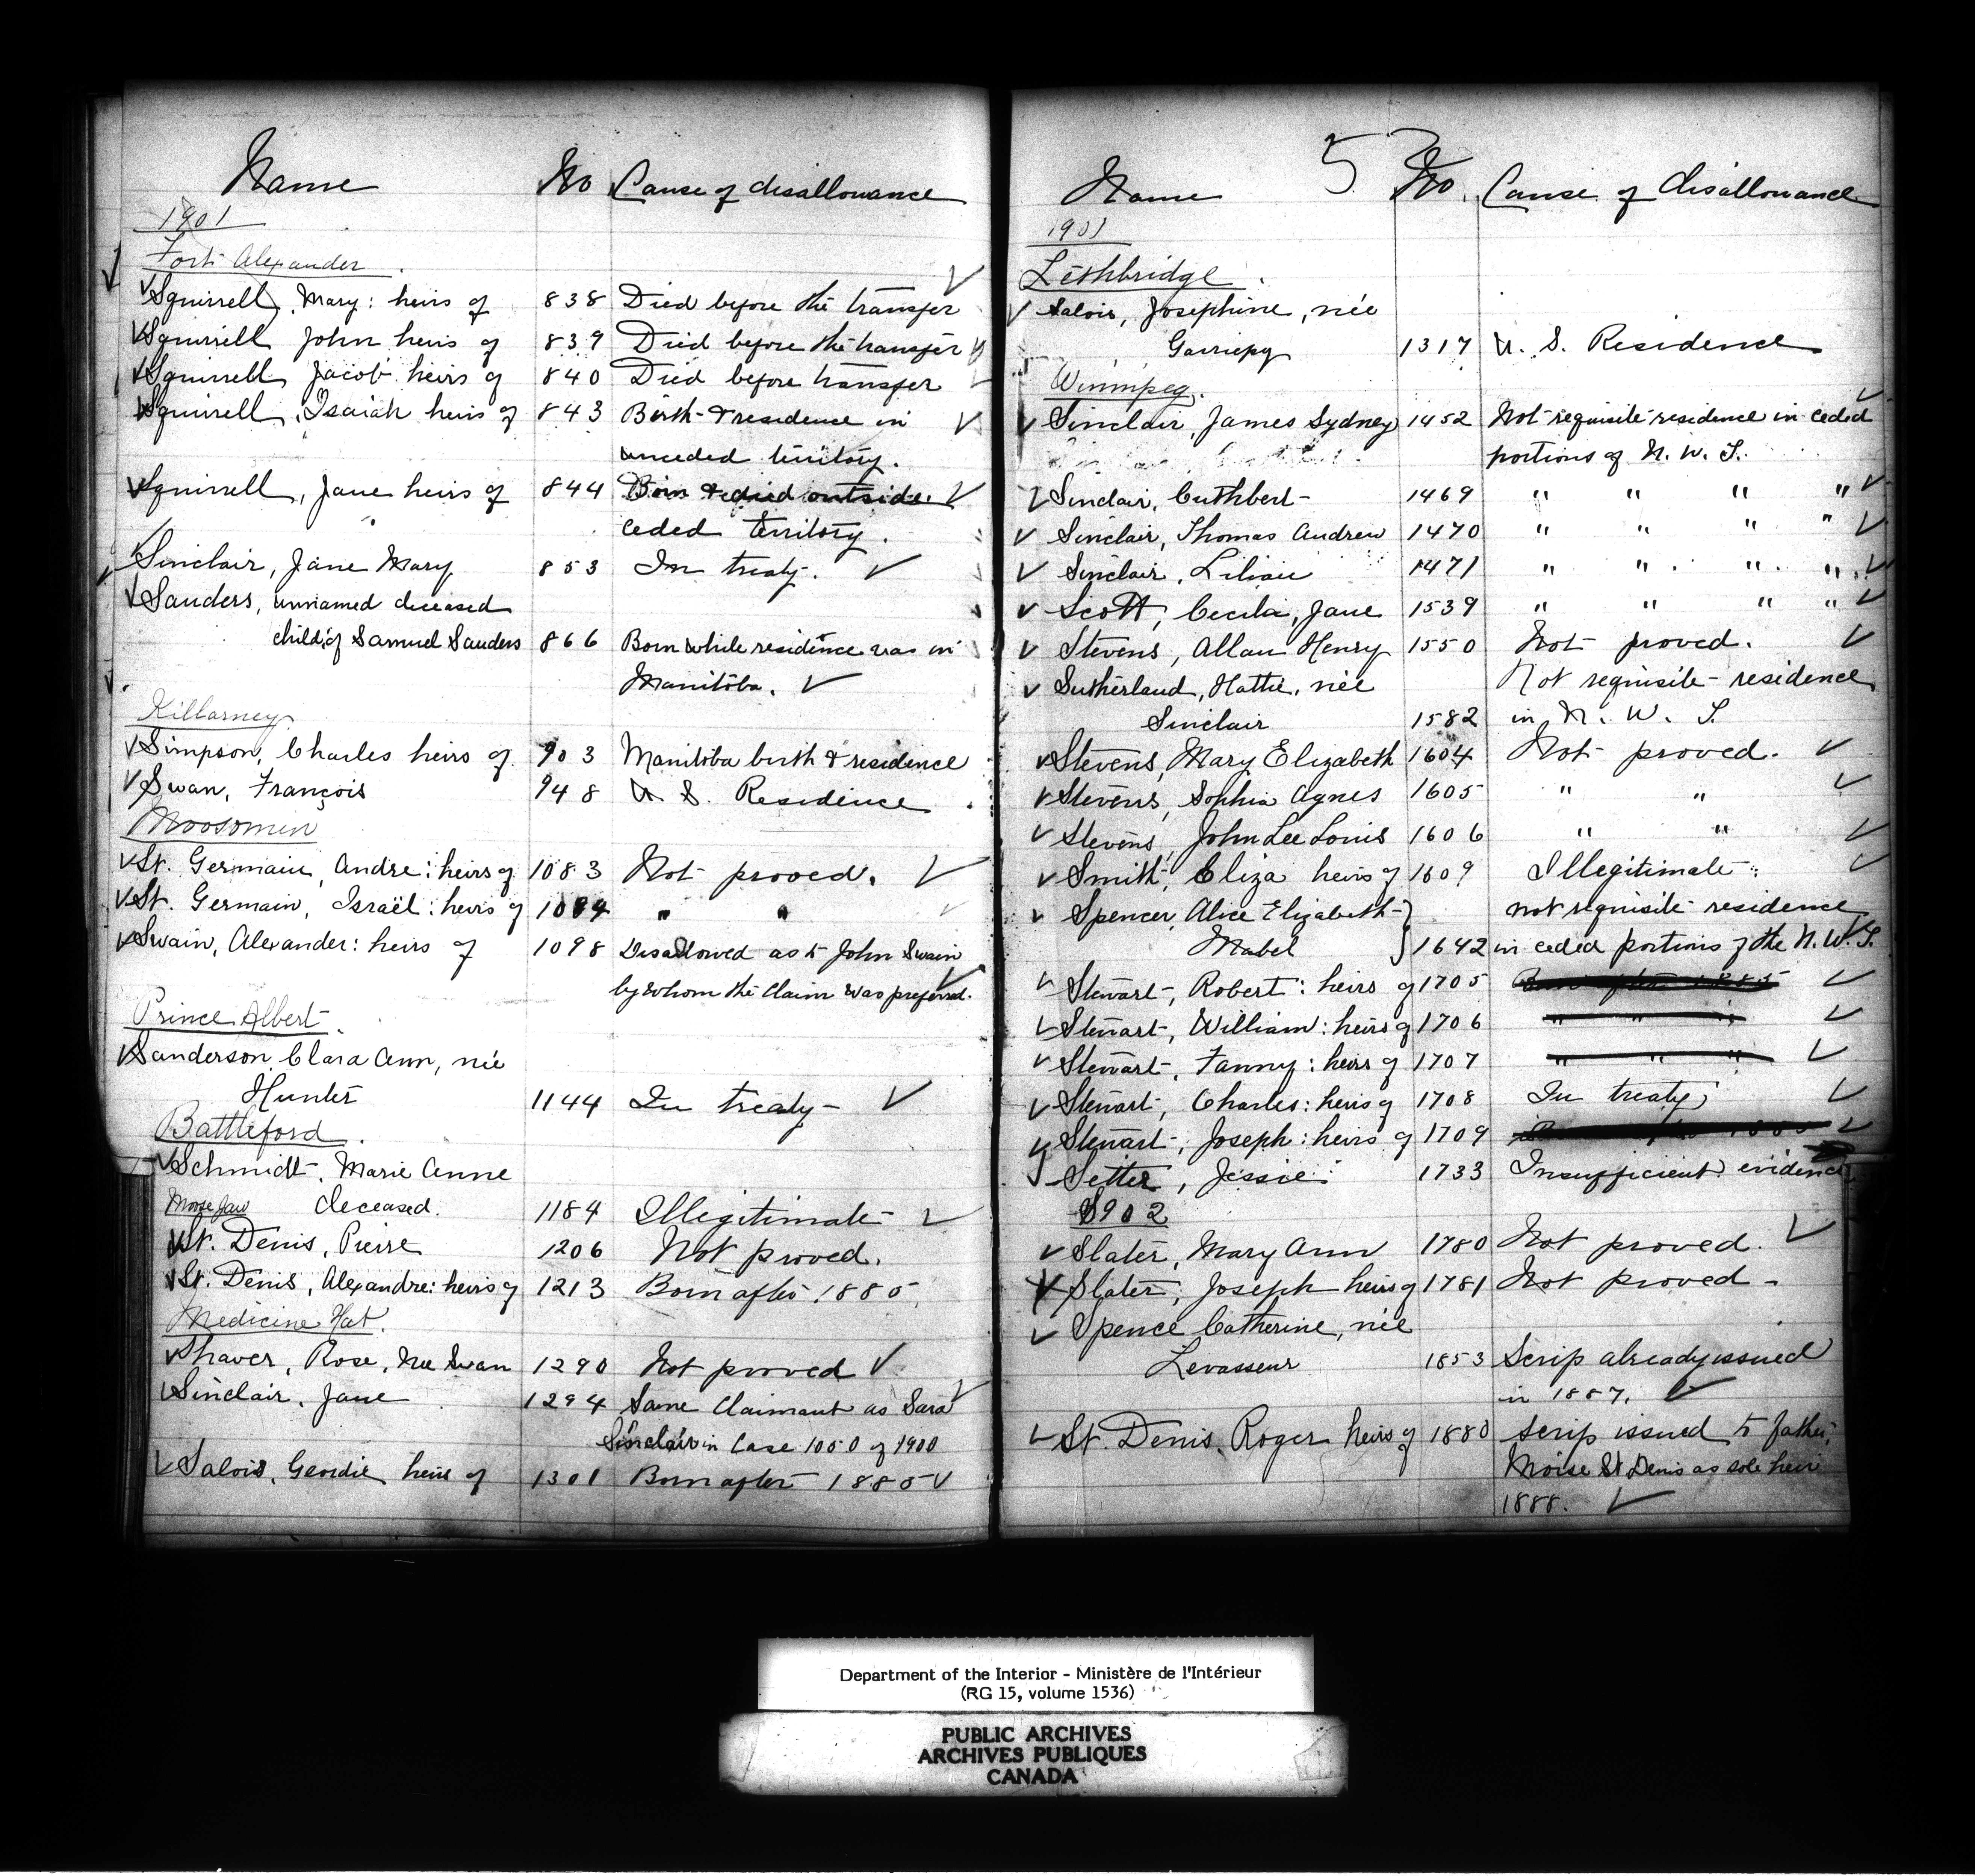 Name No Cause of disallowance
1901
Fort Alexander
Squirrell, Mary: heirs of 838 Died before the transfer
Squirrell John heirs of 839 Died before the transfer
Squirrell Jacob heirs of 840 Died before transfer
Squirrell, Isaiah heirs of 843 Birth & residence in
unceded territory.
Squirrell, Jane heirs of 844 Born & died outside
ceded territory.
Sinclair, Jane Mary 853 In treaty.
Sanders, unnamed deceased
child of Samuel Sanders 866 Born while residence was in
Manitoba.
Killarney
Simpson, Charles heirs of 903 Manitoba birth & residence
Swan, François 948 U. S. Residence
Moosomin
St. Germain, Andre: heirs of 1083 Not proved.
St. Germain, Israël: heirs of 1084 " "
Swain, Alexander: heirs of 1098 Disallowed as to John Swain
by whom the claim was preferred.
Prince Albert
Sanderson Clara Ann, née
Hunter 1144 In treaty
Battleford.
Schmidt, Marie Anne
Moose Jaw deceased. 1184 Illegitimate
St. Denis, Pierre 1206 Not proved.
St. Denis, Alexandre: heirs of 1213 Born after 1885
Medicine Hat.
Shaver, Rose, née Swan 1290 Not proved
Sinclair, Jane 1294 Same Claimant as Sara
Sinclair in Case 1050 of 1900
Salois, Geordie heirs of 1301 Born after 1885
53
Name No. Cause of disallowance
1901
Lethbridge.
Salois, Josephine, née
Gariepy 1317 U. S. Residence
Winnipeg.
Sinclair, James Sydney 1452 Not requisite residence in ceded
portions of N. W. T.
Sinclair, Cuthbert 1469 " " " "
Sinclair, Thomas Andrew 1470 " " " "
Sinclair, Lilian 1471 " " " "
Scott, Cecilia, Jane 1539 " " " "
Stevens, Allan Henry 1550 Not proved.
Sutherland, Hattie, née Not requisite residence
Sinclair 1582 in N. W. T.
Stevens, Mary Elizabeth 1604 Not proved.
Stevens, Sophia Agnes 1605 " "
Stevens, John Lee Louis 1606 " "
Smith, Eliza heirs of 1609 Illegitimate
Spencer, Alice Elizabeth } not requisite residence
Mabel } 1642 in ceded portions of the N. W. T.
Stewart, Robert: heirs of 1705 Born after 1885
Stewart, William: heirs of 1706 " " "
Stewart, Fanny: heirs of 1707 " " "
Stewart, Charles: heirs of 1708 In treaty
Stewart, Joseph: heirs of 1709
Setter, Jessie 1733 Insufficient evidence
1902
Slater, Mary Ann 1780 Not proved.
Slater, Joseph heirs of 1781 Not proved -
Spence Catherine, née
Levasseur 1853 Scrip already issued
in 1887.
St. Denis, Roger heirs of 1880 scrip issued to father,
Moïse St Denis as sole heir
1888.
Department of the Interior - Ministère de l'Intérieur
(RG 15, volume 1536)
PUBLIC ARCHIVES
ARCHIVES PUBLIQUES
CANADA